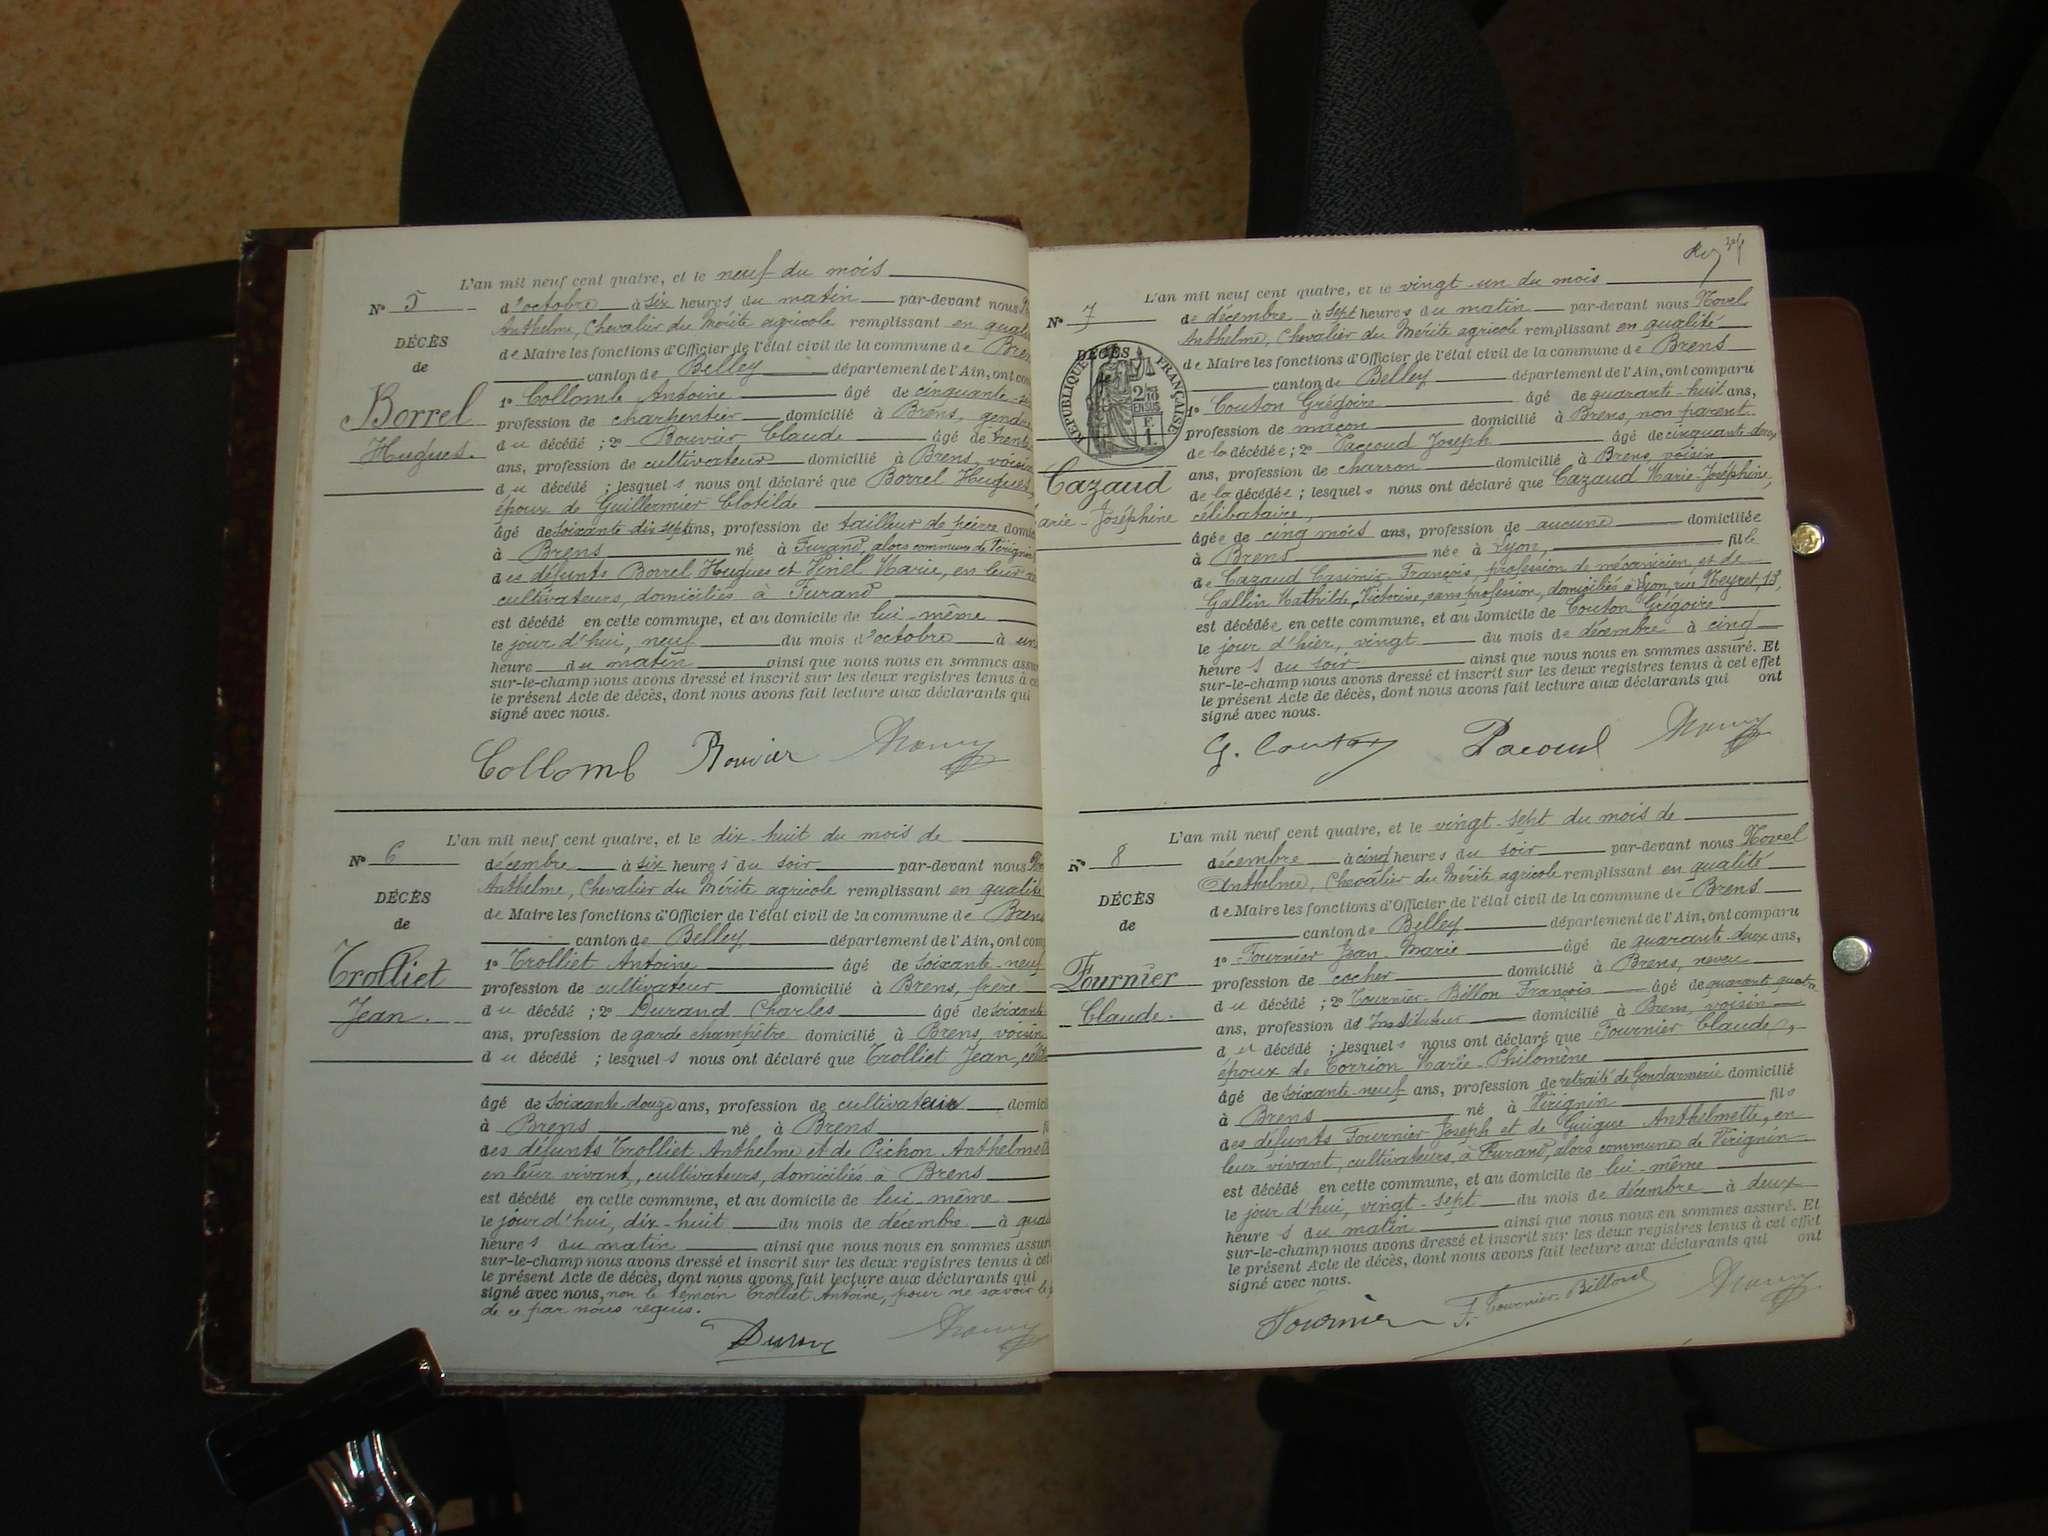 L'an mil neuf cent quatre, et le neuf du mois
N° 5
d'octobre à six heures du matin par-devant nous
Anthelme, Chevalier du Mérite agricole remplissant en qualité
DÉCÈS
de Maire les fonctions d'Officier de l'état civil de la commune de Brens
de
canton de Belley département de l'Ain, ont
Borrel
1° Collomb Antoine âgé de cinquante
profession de charpentier domicilié à Brens, gendre
Hugues.
du décédé ; 2° Bouvier Claude âgé de trente
ans, profession de cultivateur domicilié à Brens, voisin
du décédé ; lesquels nous ont déclaré que Borrel Hugues,
époux de Guillermier Clotilde
âgé de soixante dix sept ans, profession de tailleur de pierre
à Brens né à Furand, alors commune de Virignin
des défunts Borrel Hugues et Vinel Marie, en leur
cultivateurs, domiciliés à Furand
est décédé en cette commune, et au domicile de lui-même
le jour d'hui, neuf du mois d'octobre à une
heure du matin ainsi que nous nous en sommes
sur-le-champ nous avons dressé et inscrit sur les deux registres tenus à
le présent Acte de décès, dont nous avons fait lecture aux déclarants qui
signé avec nous.
Collomb Bouvier
L'an mil neuf cent quatre, et le dix-huit du mois de
N° 6
décembre à six heures du soir par-devant nous
Anthelme, Chevalier du Mérite agricole remplissant en qualité
DÉCÈS
de Maire les fonctions d'Officier de l'état civil de la commune de Brens
de
canton de Belley département de l'Ain, ont
Trolliet
1° Trolliet Antoine âgé de soixante-neuf
profession de cultivateur domicilié à Brens, frère
Jean.
du décédé ; 2° Durand Charles âgé de soixante
ans, profession de garde champêtre domicilié à Brens, voisin
du décédé ; lesquels nous ont déclaré que Trolliet Jean,
âgé de soixante-douze ans, profession de cultivateur
à Brens né à Brens
des défunts Trolliet Anthelme et de Pichon Anthelmette
en leur vivant, cultivateurs, domiciliés à Brens
est décédé en cette commune, et au domicile de lui-même
le jour d'hui, dix-huit du mois de décembre à
heures du matin ainsi que nous nous en sommes
sur-le-champ nous avons dressé et inscrit sur les deux registres tenus à
le présent Acte de décès, dont nous avons fait lecture aux déclarants qui
signé avec nous, non le témoin Trolliet Antoine, pour ne savoir le
de ce par nous requis.
L'an mil neuf cent quatre, et le vingt-un du mois
N° 7
de décembre à sept heures du matin par-devant nous Novel
Anthelme, Chevalier du Mérite agricole remplissant en qualité
DÉCÈS
de Maire les fonctions d'Officier de l'état civil de la commune de Brens
de
canton de Belley département de l'Ain, ont comparu
RÉPUBLIQUE FRANÇAISE
2/10
EN SUS
F.
1.
1° Couton Grégoire âgé de quarante-huit ans,
profession de maçon domicilié à Brens, non parent
de la décédée ; 2° Paccoud Joseph âgé de cinquante-deux
ans, profession de charron domicilié à Brens, voisin
Cazaud
de la décédée ; lesquels nous ont déclaré que Cazaud Marie-Joséphine,
arie-Joséphine
célibataire,
âgée de cinq mois ans, profession de aucune domiciliée
à Brens née à Lyon, fille
de Cazaud Casimir-François, profession de mécanicien, et de
Gallin Mathilde, Victorine, sans profession, domiciliés à Lyon, rue Neyret, 13,
est décédée en cette commune, et au domicile de Couton Grégoire
le jour d'hier, vingt du mois de décembre à cinq
heures du soir ainsi que nous nous en sommes assuré. Et
sur-le-champ nous avons dressé et inscrit sur les deux registres tenus à cet effet
le présent Acte de décès, dont nous avons fait lecture aux déclarants qui ont
signé avec nous.
G. Couton Pacoud
L'an mil neuf cent quatre, et le vingt-sept du mois de
N° 8
décembre à cinq heures du soir par-devant nous Novel
Anthelme, Chevalier du Mérite agricole remplissant en qualité
DÉCÈS
de Maire les fonctions d'Officier de l'état civil de la commune de Brens
de
canton de Belley département de l'Ain, ont comparu
1° Fournier Jean-Marie âgé de quarante-deux ans,
Fournier
profession de cocher domicilié à Brens, neveu
Claude.
du décédé ; 2° Tournier-Billon François âgé de quarante quatre
ans, profession d'Instituteur domicilié à Brens, voisin
du décédé ; lesquels nous ont déclaré que Fournier Claude,
époux de Torrion Marie-Philomène
âgé de soixante-neuf ans, profession de retraité de Gendarmerie domicilié
à Brens né à Virignin fils
des défunts Fournier Joseph et de Guigue Anthelmette, en
leur vivant, cultivateurs, à Furand, alors commune de Virignin
est décédé en cette commune, et au domicile de lui-même
le jour d'hui, vingt-sept du mois de décembre à deux
heures du matin ainsi que nous nous en sommes assuré. Et
sur-le-champ nous avons dressé et inscrit sur les deux registres tenus à cet effet
le présent Acte de décès, dont nous avons fait lecture aux déclarants qui ont
signé avec nous.
Fournier F. Tournier-Billon